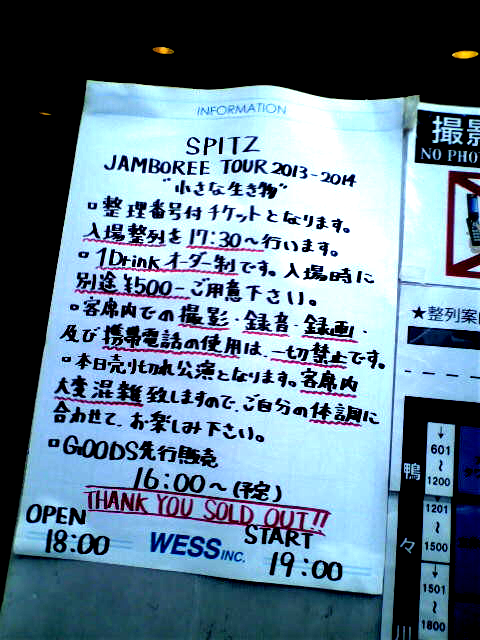 INFORMATION
SPITZ
JAMBOREE TOUR 2013-2014
"小さな生き物"
整理番号付チケットとなります。
入場整列を17:30~行います。
1Drinkオーダー制です。入場時に
別途¥500-ご用意下さい。
客席内での撮影・録音・録画・
及び携帯電話の使用は、一切禁止です。
本日売り切れ公演となります。客席内
大変混雑致しますので、ご自分の体調に
合わせて、お楽しみ下さい。
GOODS先行販売
16:00~(予定)
THANK YOU SOLD OUT!!
OPEN
18:00
WESS INC.
START
19:00
撮影
NO PHO
★整列案
鴨々川
↓
601
~
1200
↓
1201
~
1500
↓
1501
~
1800